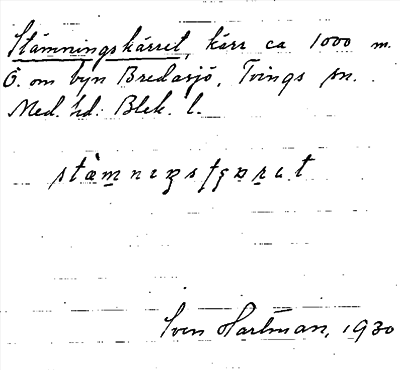 Stämningskärret, kärr ca 1000 m.
Ö. om byn Bredasjö, Tvings sn.
Med. hd. Blek. l.
Sven Hartman, 1930